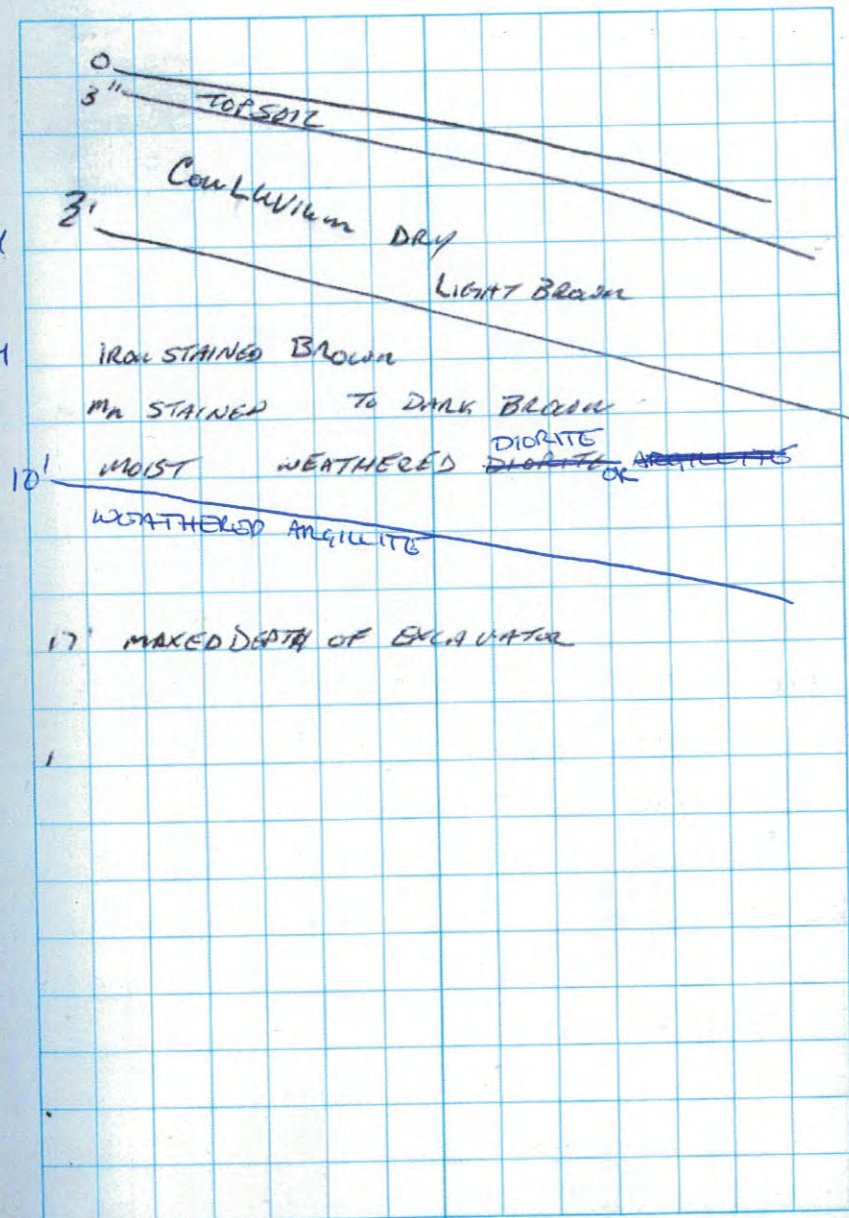 0
3" TOPSOIL
COLLUVIUM DRY
LIGHT BROWN
IRON STAINED BROWN
Mn STAINED TO DARK BROWN
DIORITE
10' MOIST WEATHERED DIORITE OR ARGILLITE
WEATHERED ARGILLITE
17' MAXED DEPTH OF EXCAVATOR